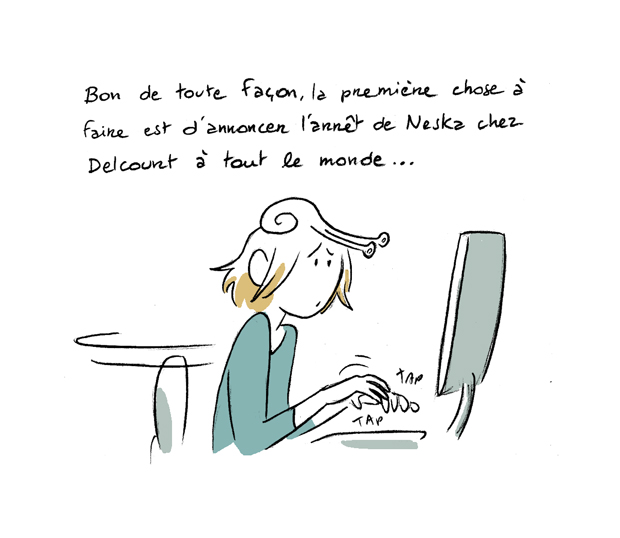 Bon de toute façon, la première chose à
faire est d'annoncer l'arrêt de Neska chez
Delcourt à tout le monde...
TAP
TAP